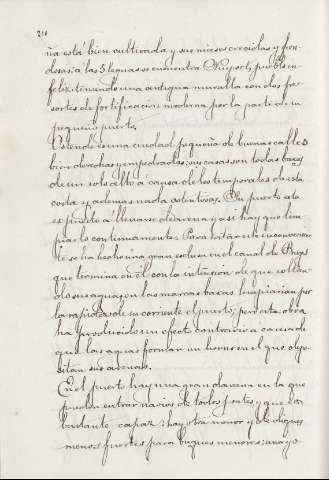 210
ña está bien cultivada y sus mieses crecidas y fron-
dosas: á las 3 leguas se encuentra Nieuport, pueblo in-
feliz teniendo una antigua muralla con dos fra-
sortes de fortificacion moderna por la parte de un
pequeño puerto.
Ostende es una ciudad pequeña de buenas calles
bien derechas y empedradas, sus casas son todas bajas
de un solo alto á causa de los temporales de esta
costa y ademas nada ostentosas. Su puerto está
espuesto á llenarse de arena y asi hay que lim-
piarlo continuamente. Para evitar este inconvenien-
te se ha hecho una gran esclusa en el canal de Brujas
que termina en él con la intencion de que soltan-
do sus aguas en las mareas bajas limpiarian por
la rapidez de su corriente el puerto; pero esta obra
ha producido un efecto contrario á causa de
que las aguas forman un horno en el que depo-
sitan sus arenas.
En el puerto hay una gran darsena en la que
pueden entrar navios de todos portes, y que es
bastante capaz: hay otra menor y de diques
menos fuertes para buques menores: una y o-